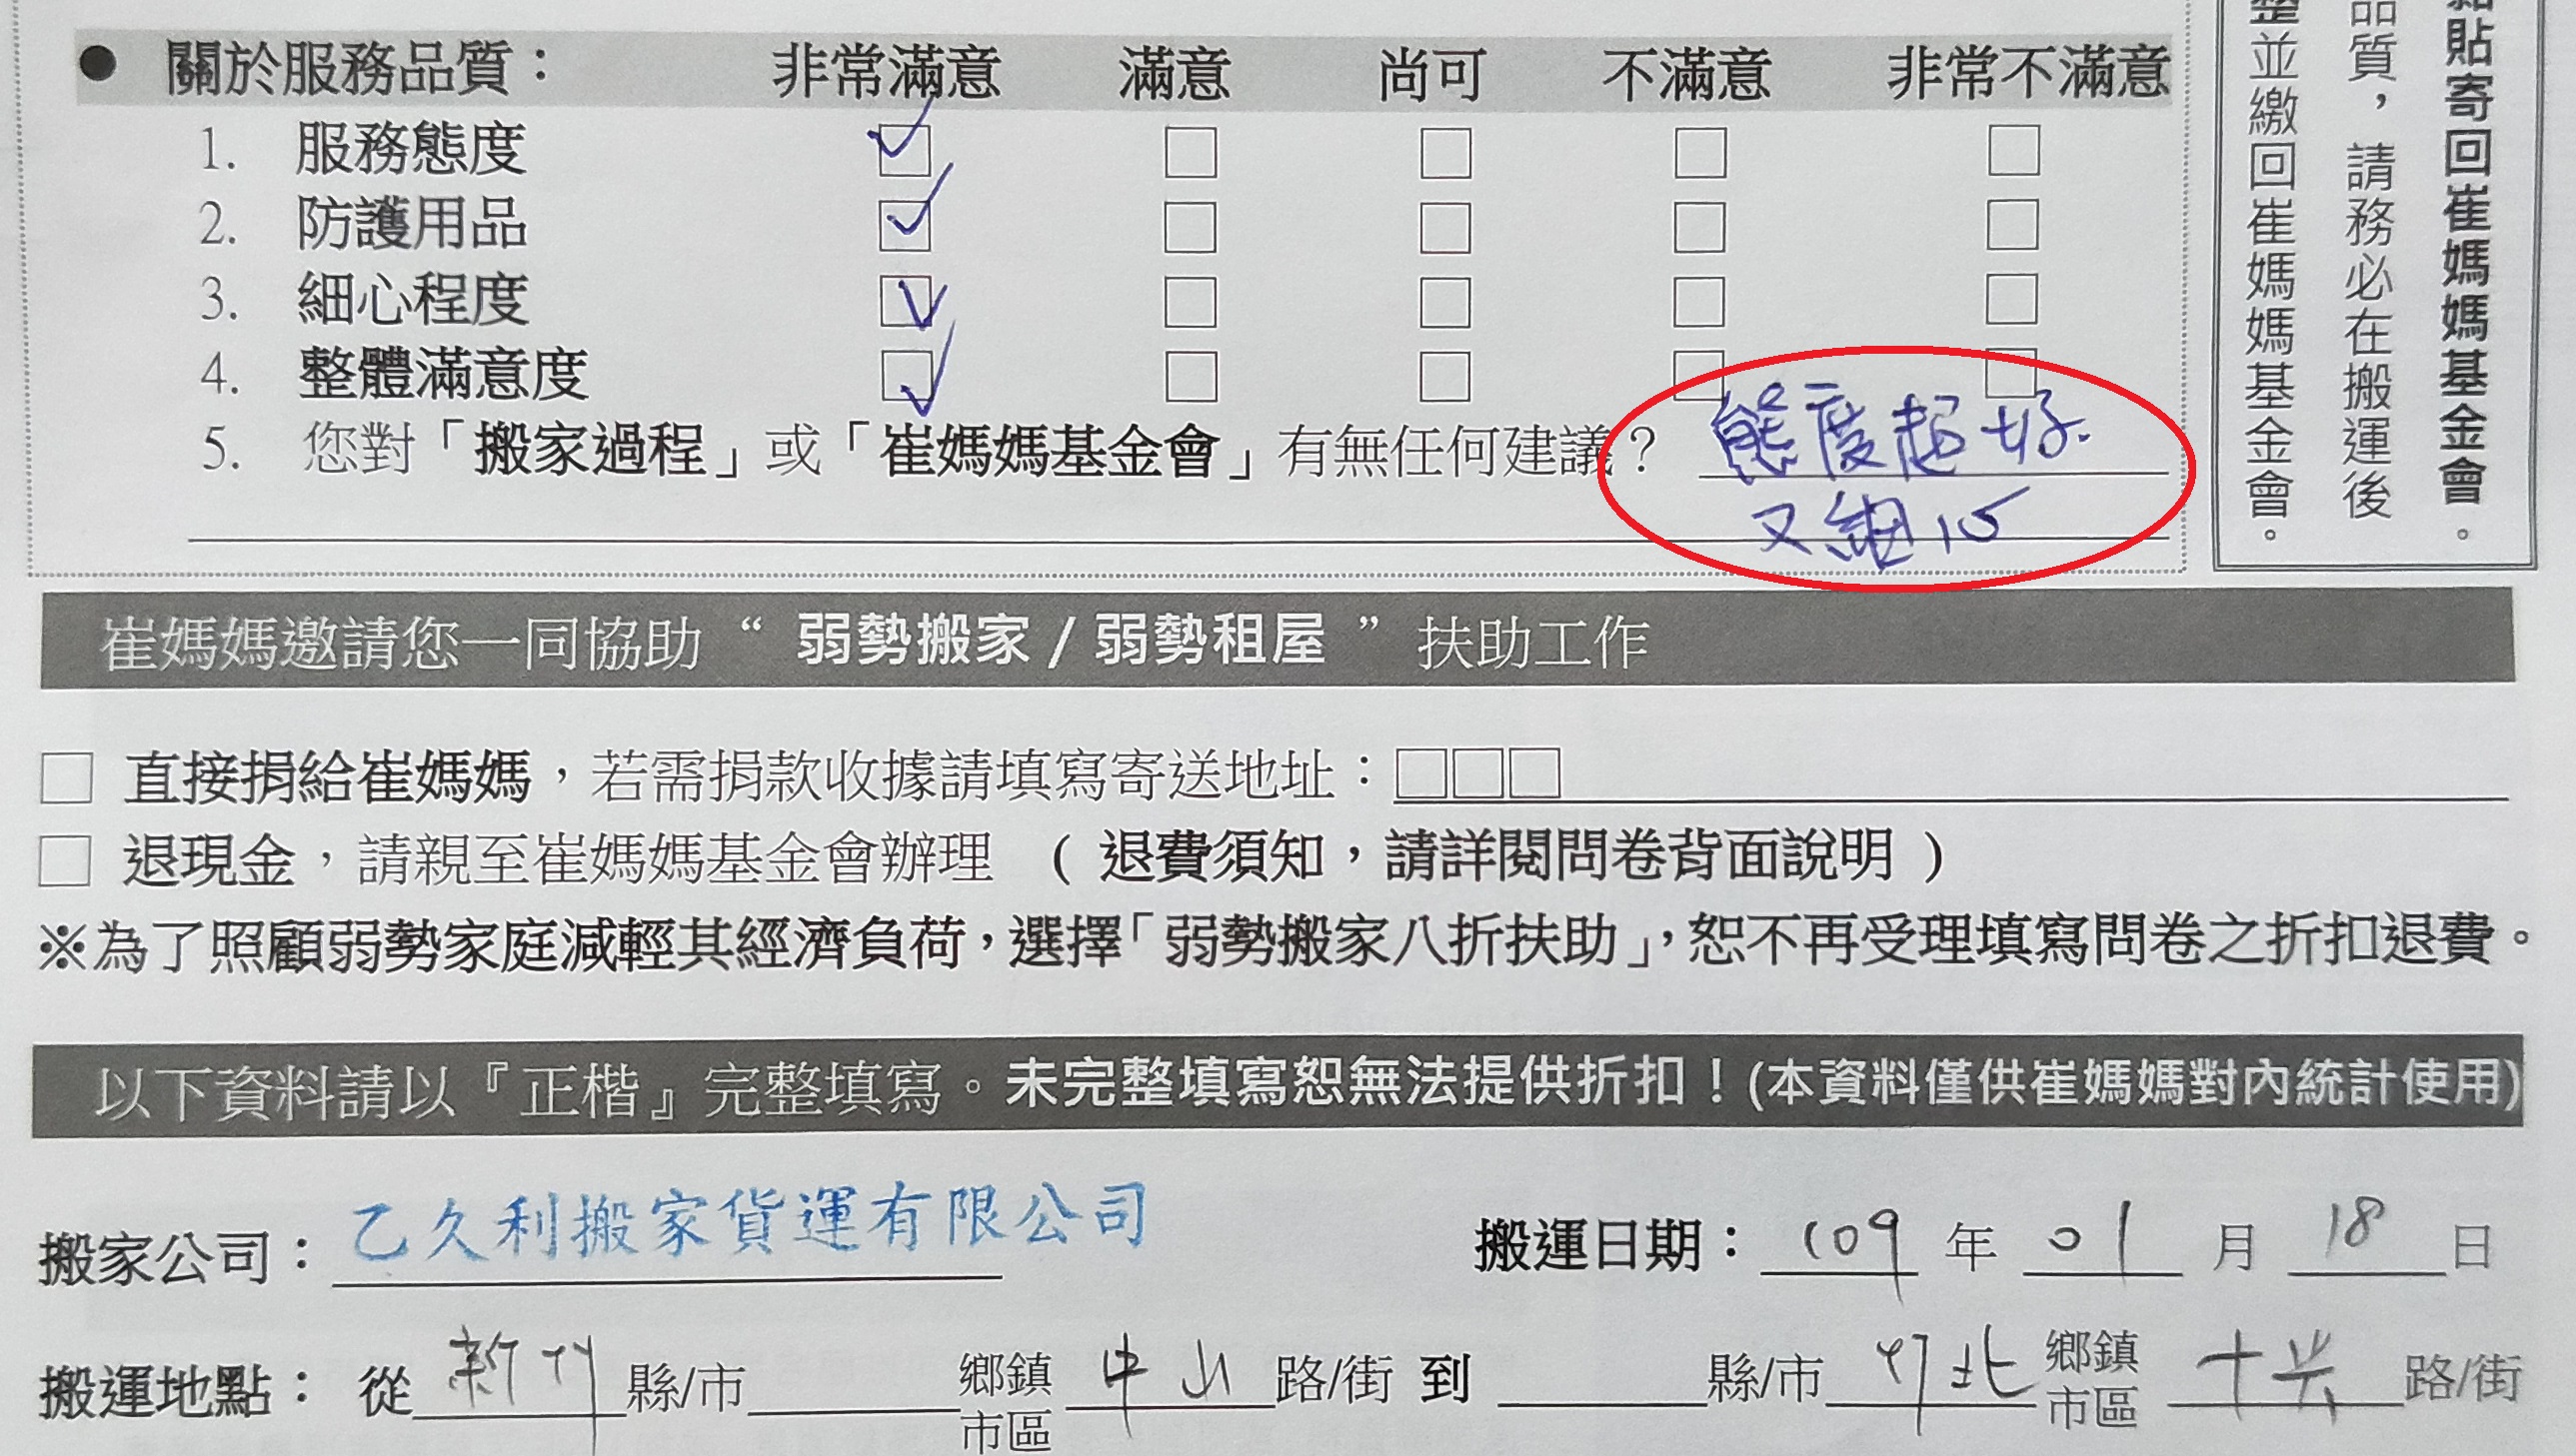 ● 關於服務品質： 非常滿意 滿意 尚可 不滿意 非常不滿意
1. 服務態度 ✓ □ □ □ □
2. 防護用品 ✓ □ □ □ □
3. 細心程度 ✓ □ □ □ □
4. 整體滿意度 ✓ □ □ □ □
5. 您對「搬家過程」或「崔媽媽基金會」有無任何建議？ 態度超好.
又細心
黏貼寄回崔媽媽基金會。
品質，請務必在搬運後
整並繳回崔媽媽基金會。
崔媽媽邀請您一同協助“弱勢搬家/弱勢租屋”扶助工作
□ 直接捐給崔媽媽，若需捐款收據請填寫寄送地址：□□□
□ 退現金，請親至崔媽媽基金會辦理 (退費須知，請詳閱問卷背面說明)
※為了照顧弱勢家庭減輕其經濟負荷，選擇「弱勢搬家八折扶助」，恕不再受理填寫問卷之折扣退費。
以下資料請以『正楷』完整填寫。未完整填寫恕無法提供折扣！(本資料僅供崔媽媽對內統計使用)
搬家公司：乙久利搬家貨運有限公司 搬運日期：109 年 01 月 18 日
搬運地點：從 新竹 縣/市 鄉鎮市區 中山 路/街 到 縣/市 竹北 鄉鎮市區 十興 路/街